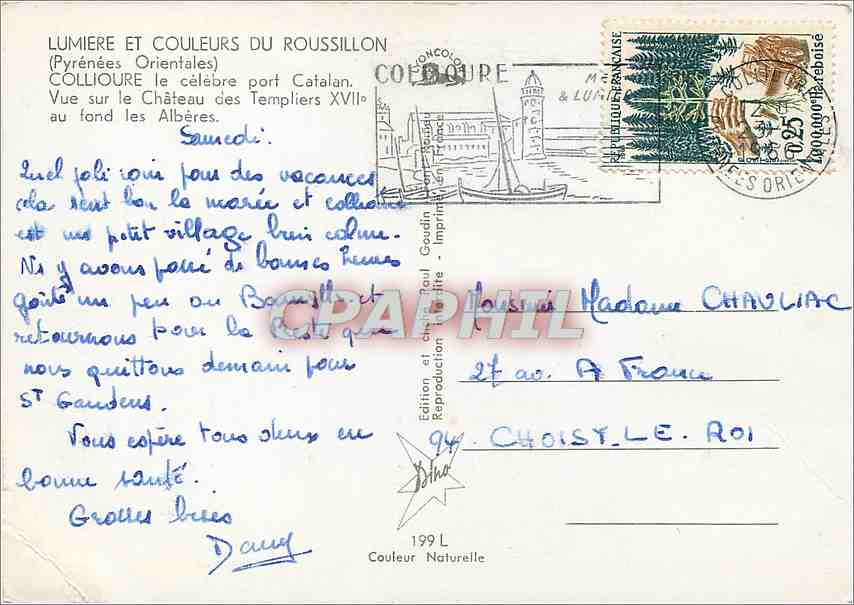 LUMIERE ET COULEURS DU ROUSSILLON
(Pyrénées Orientales)
COLLIOURE le célèbre port Catalan.
Vue sur le Château des Templiers XVIIe
au fond les Albères.
Samedi.
Quel joli coin pour des vacances
cela sent bon la marée et collioure
est un petit village bien calme.
Ns y avons passé de bonnes heures
goûté un peu au Banyuls et
retournons pour la que
nous quittons demain pour
St Gaudens.
Vous espère tous deux en
bonne santé.
Grosses bises
Dany
Edition et cliché Paul Goudin Font-Romeu
Reproduction interdite - Imprimé en France
IONCOLOR
Dino
199 L
Couleur Naturelle
COLLIOURE
& LUM
COLLIOURE
PYRENEES ORIENTALES
REPUBLIQUE FRANÇAISE
0,25
POSTES
1.000.000e ha reboisé
Monsieur Madame CHAULIAC
27 av. A France
94. CHOISY. LE. ROI
CPAPHIL